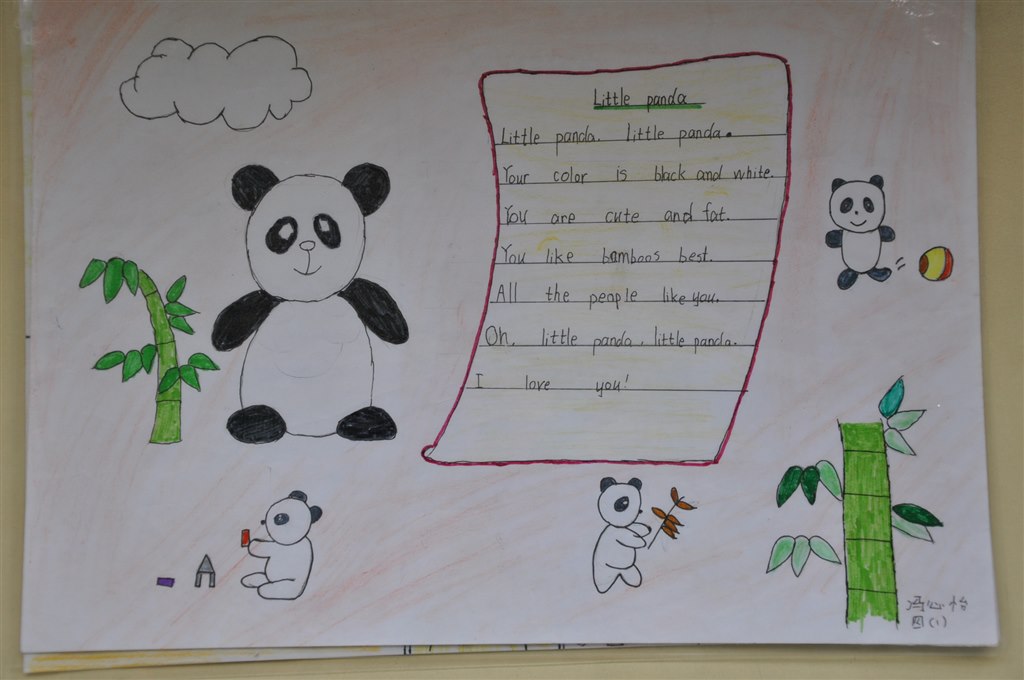 Little panda
Little panda. little panda.
Your color is black and white.
You are cute and fat.
You like bamboos best.
All the people like you.
Oh, little panda, little panda.
I love you!
冯心怡
图(1)